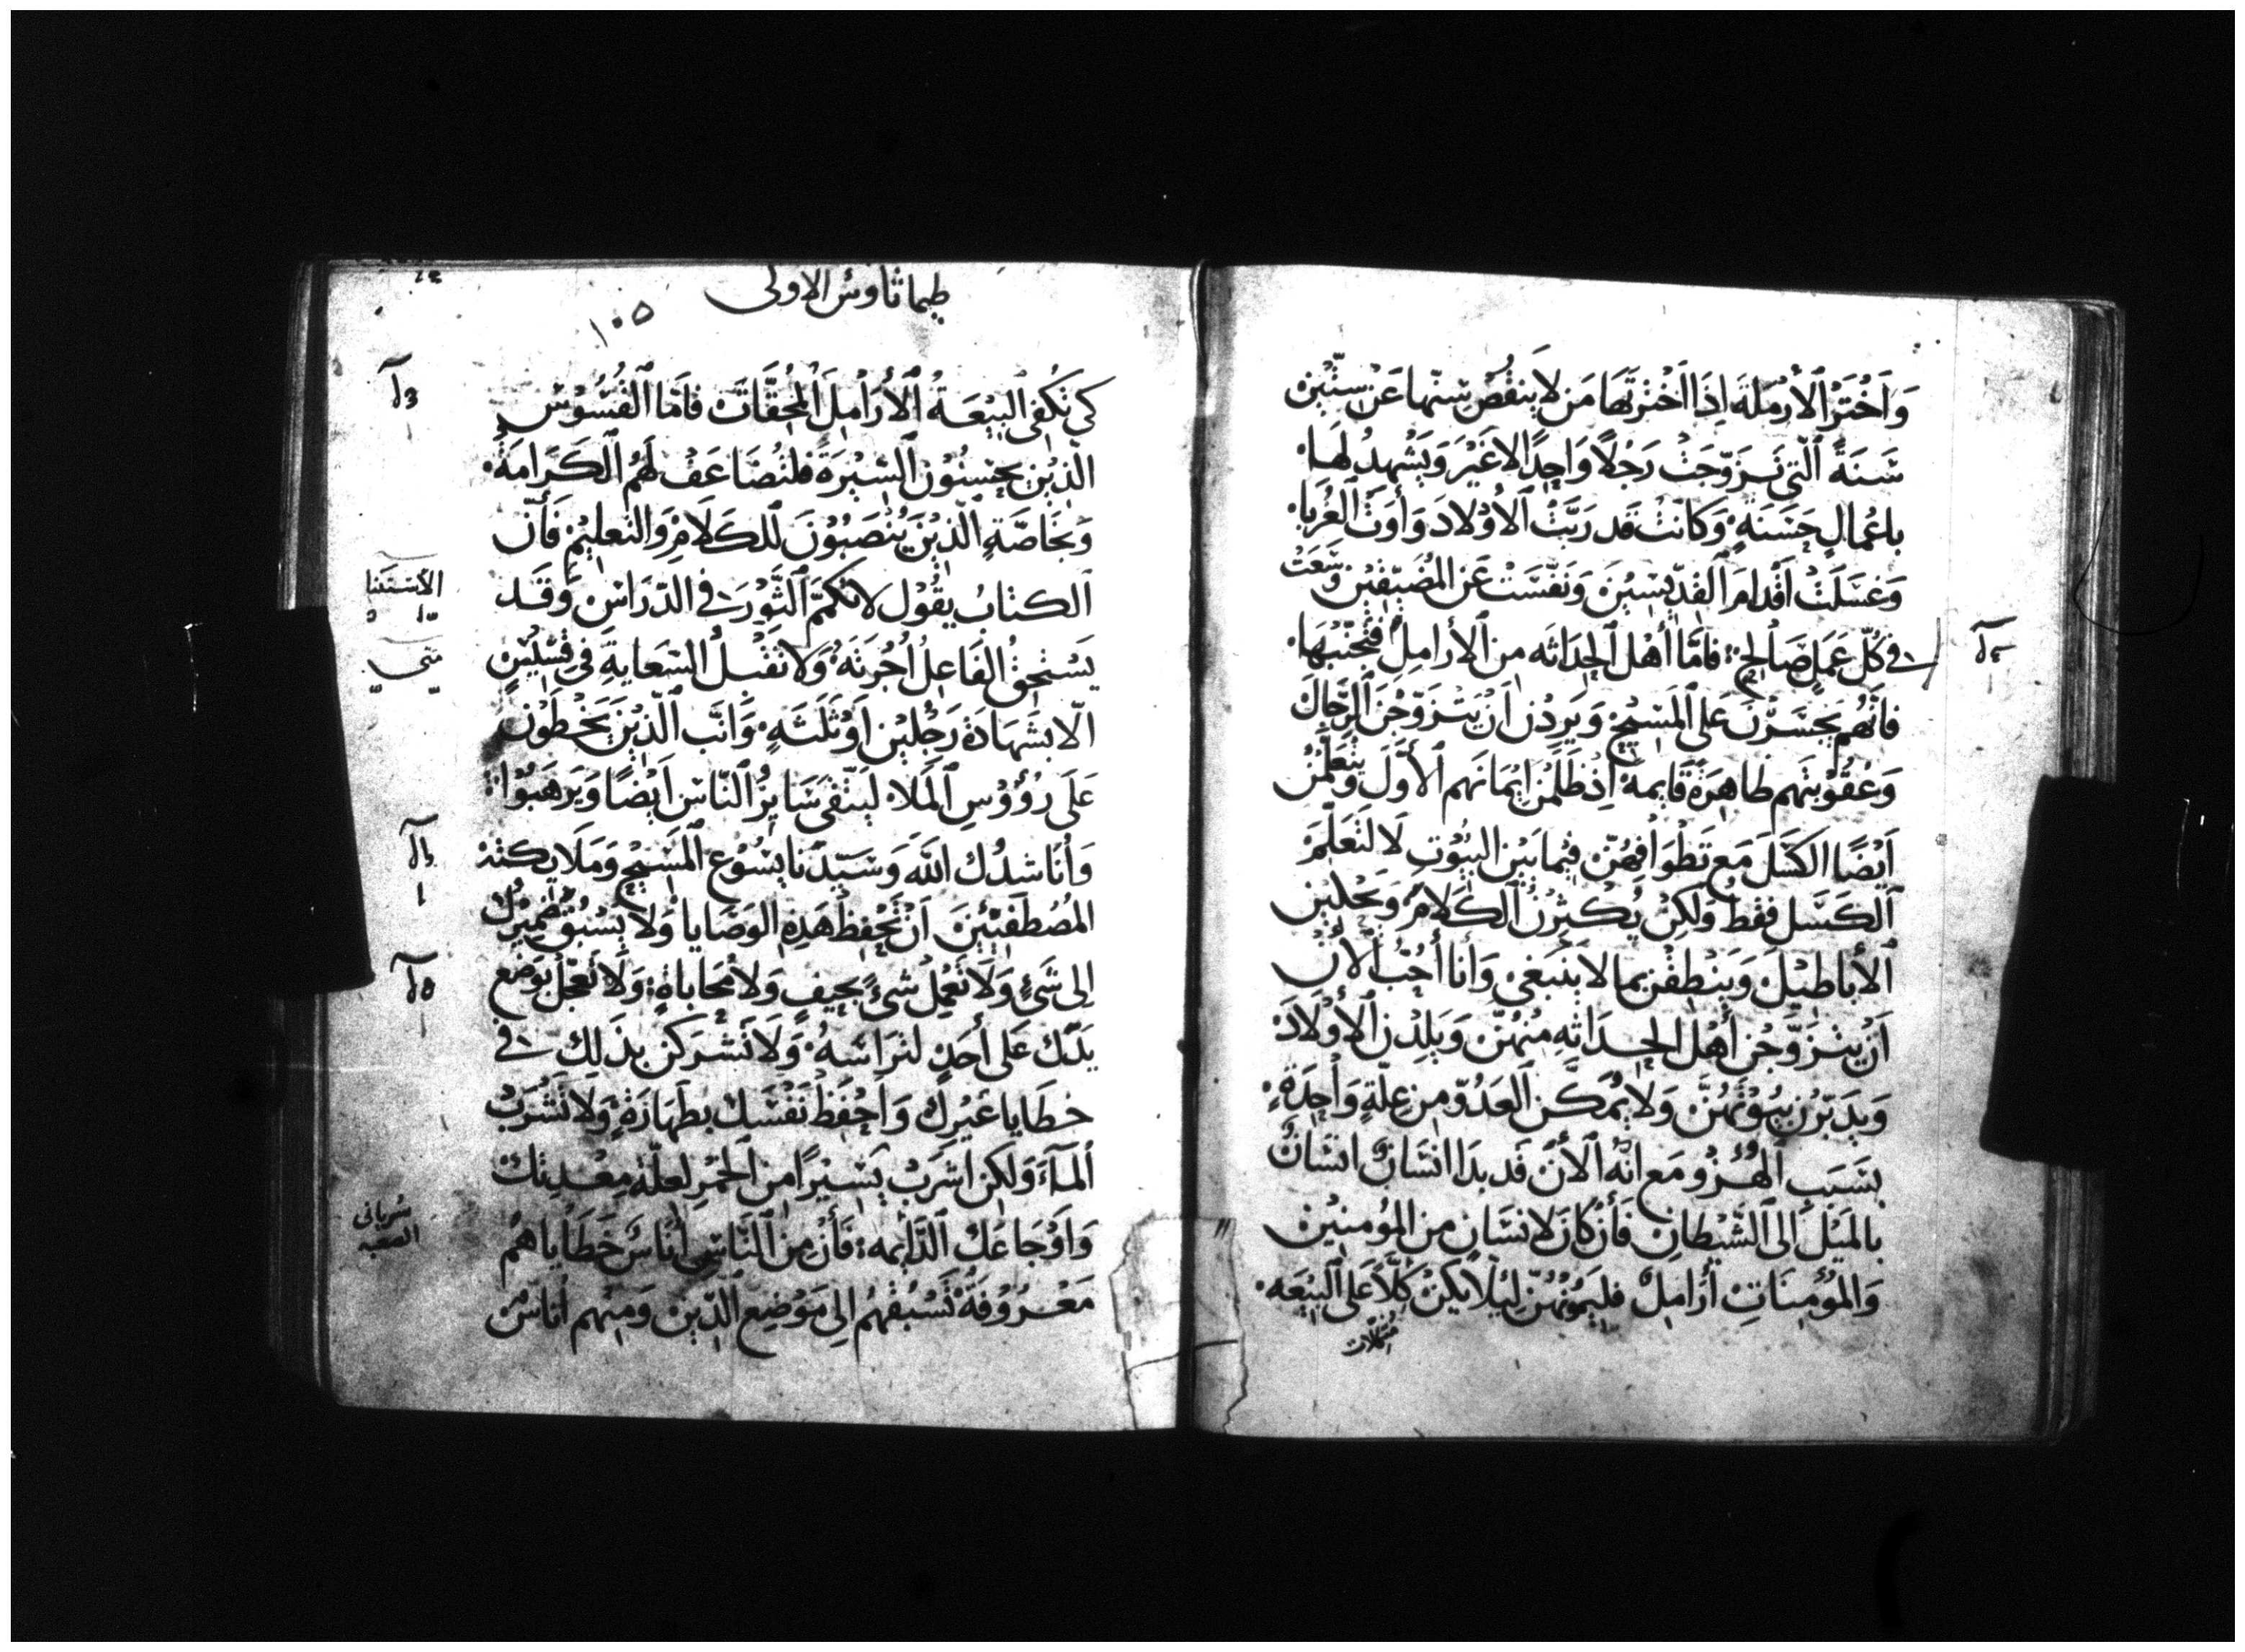 وَاَخْتَرْ الأَرْمَلَةَ اِذَا اَخْتَرتَهَا مَن لاَ يَنقُصُ سِنّهَا عَنْ سِتّيْن
سَنَةً الّتي تَزَوّجَتْ رَجُلاً وَاحِدًا لاغَيْرَ وَيَشْهدُ لهَا
باعْمالٍ حَسَنَهٍ وَكانَتْ قَد رَبَّتْ الأَوْلادَ وَأَوَتْ الغُرَباء
وَغسَلَتْ اَقْدامَ القدّيسِيْنَ وَنَفّسَتْ عَن المُضَيّقِيْن وَسَّعَتْ
في كُلّ عَمَلٍ صَالِحٍ فَامّا أَهْل الحِدَاثَه مِن الأَرامِلِ فتَجَنّبْهَا
فَانّهُم يَجْسَرْنَ عَلى المَسِيْحِ وَيرِدْن اَنْ يَتَزَوّجْنَ الرّجَالَ
وَعُقُوْبتَهم ظاهِرَةً قَايمةً اِذْ ظَلَمْن اِيْمَانَهم الأَوّلَ وَيتَعَلّمْن
اَيْضًا الكَسَلَ مَع تَطْوَافِهُنّ فيْما بَيْن البيُوْتِ لاَ لتَعَلّمَ
الكَسَلِ فقَطْ وَلكِنْ يُكْثِرْن الكَلاَمَ وَيَجْلِبْن
الأَباطيْلَ وَيَنْطِقْن بمالاَ يَنبَغي وَأنا أُحُبّ الأَن
اَنْ يتَزَوَّجْن أَهْل الحِدَاثَهِ مِنهُنّ وَيلِدْن الأَوْلاَدَ
وَيدَبّرْن بيُوْتهُنّ وَلاَ يُمَكَّن العَدُوّ من عِلّةٍ وَاحِدَةٍ
بسَبَب الهُزُو مَع انّهُ الأَنَ قَد بدَا انسَانٌ انسَانٌ
بالمَيْلِ الى الشَّيْطانِ فَأن كانَ لاِنسَانٍ من المؤمِنيْن
وَالمُؤمِنَاتِ أرَامِلٌ فليَمُونهُنّ لِئيلاَ يَكُنّ كَلّاً عَلى البيْعَه
مثقلات
طيماثاوس الاولى
١٠٥
كي تَكْفي البيْعَةُ الأَرَامِلَ المُحِقّاتَ فامّا القُسُوْس
الّذيْن يحْسِنُوْن السّيْرَةَ فلتُضَاعَف لَهُم الكَرَامَةُ
وَبخَاصّةٍ الّذيْنَ يَنْصَبُوْنَ للكَلاَمِ وَالتعليْمِ فَأَنّ
الكتابَ يقُوْل لاتكُمّ الثَّوْرَ في الدّرَاسِ وَقَد
يَسْتَحِقّ الفَاعِلُ اُجْرَتَهُ وَلاَ تَقْبلْ السّعَايةَ في قسِيْسٍ
الّا بشَهَادَة رَجُلَيْن اَوْ ثَلَثَهٍ وَانّب الّذيْنَ يَخْطَوْن
عَلَى رُؤُوْسِ المَلاء ليَتّقي سَايرُ النّاس اَيْضًا وَيَرهَبُوْا
وَأُناشدُك اللّهَ وَسَيّدَنا يسُوْع المَسِيْح وَمَلاَيكتهُ
المُصْطَفَيْنَ اَنْ تَحْفِظْ هَذِه الوَصَايا وَلاَ يَسْبُقْ ضَمِيْرُك
الى شَيءٍ وَلاَ تَعْمِلْ شيءً بحَيفٍ وَلاَ مُحَاباةٍ وَلاَ تعَجّل بوَضع
يَدّك عَلى أُحَدٍ لترَاسَهُ وَلاَ تَشْرَكن بذَلِك في
خطَايا غَيْرِك وَاَحْفَظْ نَفْسَك بطَهَارَةٍ وَلاَ تَشْرَبْ
المآءَ وَلكِن اشرَبْ يَسِيْرًا من الخَمْر لعلّة مِعْدَتك
وَاَوْجاعك الدَّايمه فَأَنْ من النّاسِ اُناسٌ خَطَاياهُم
مَعْرُوْفةٌ تَسْبُقهُم الى مَوْضِع الدّيْن وَمِنهم أُناسٌ
الاستثنا
متى
سرياني